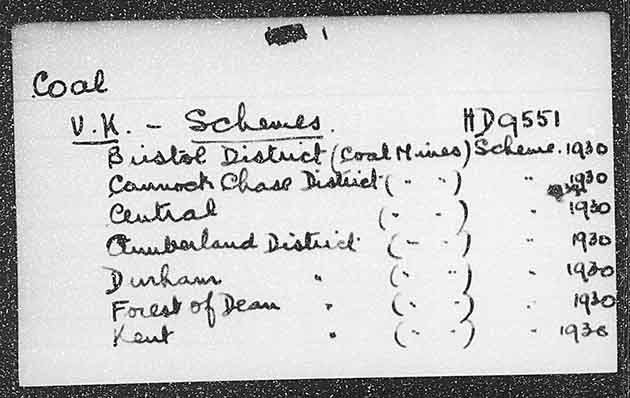 1
Coal
U.K. - Schemes. HD9551
Bristol District (Coal Mines) Scheme. 1930
Cannock Chase District ( " " ) " 1930
Central ( " " ) " 1930
Cumberland District ( " " ) " 1930
Durham " ( " " ) " 1930
Forest of Dean " ( " " ) " 1930
Kent " ( " " ) " 1930